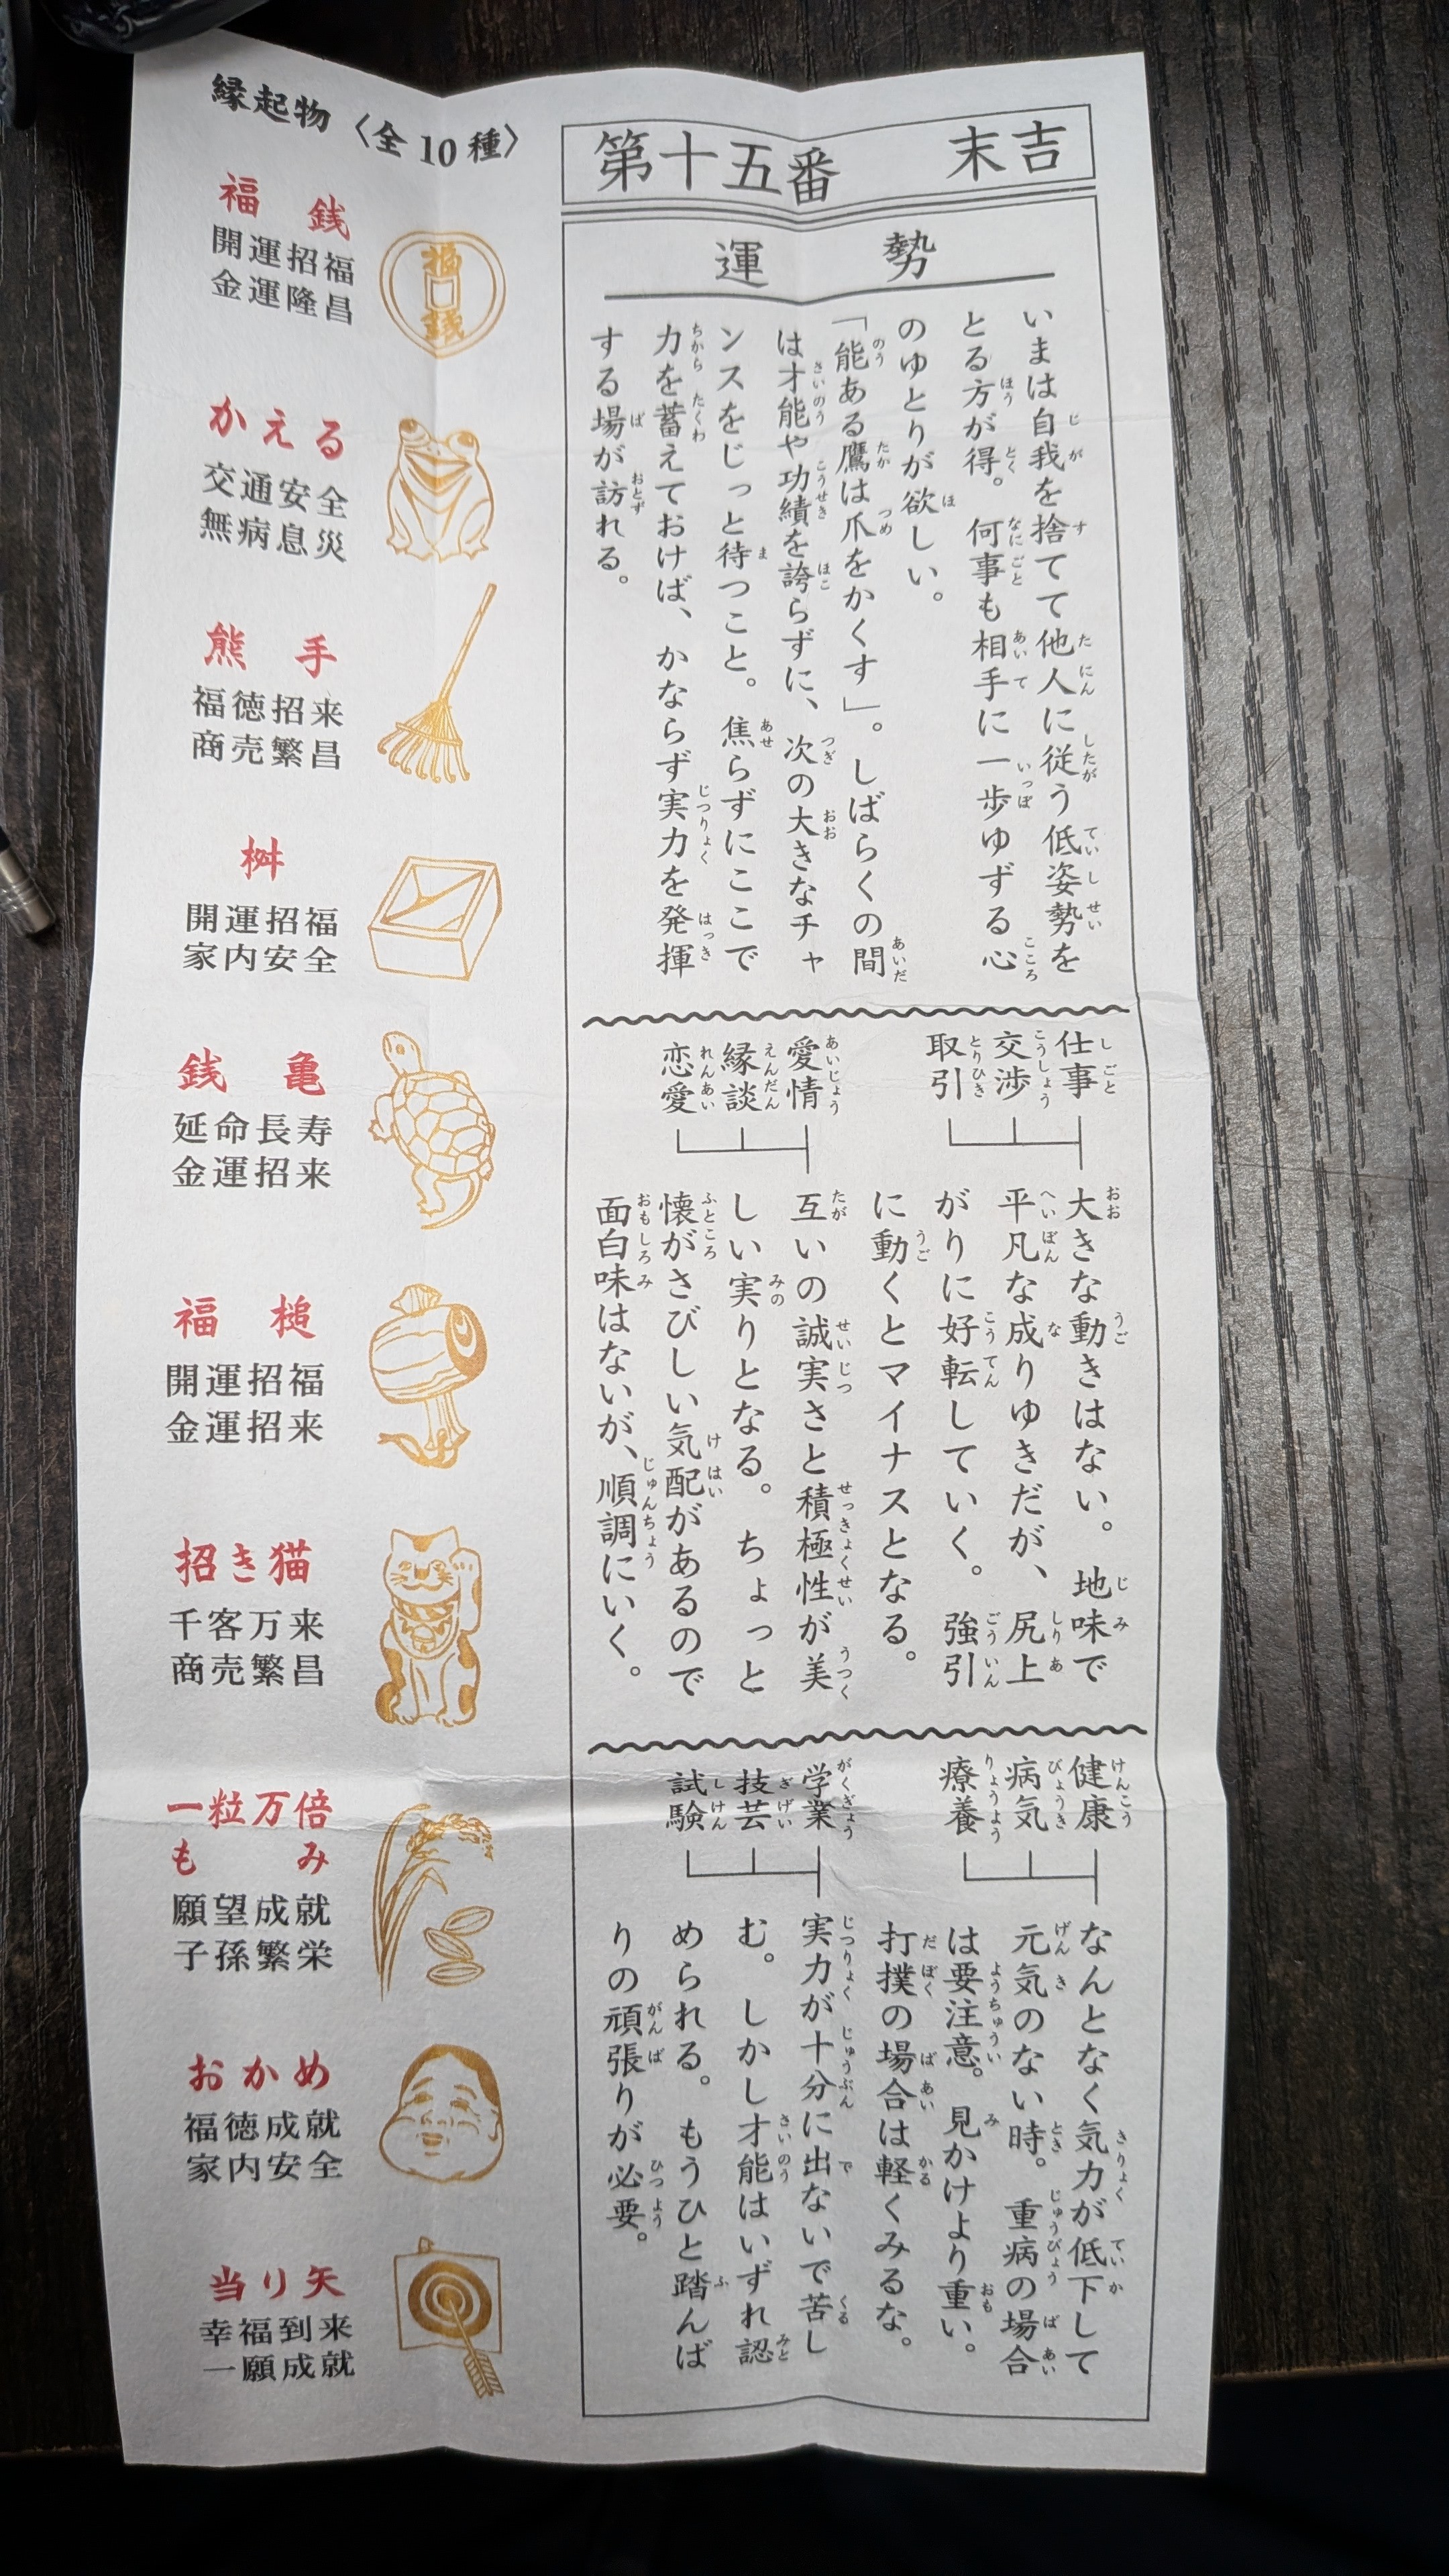 第十五番 末吉
運勢
いまは自我を捨てて他人に従う低姿勢を
とる方が得。何事も相手に一歩ゆずる心
のゆとりが欲しい。
「能ある鷹は爪をかくす」。しばらくの間
は才能や功績を誇らずに、次の大きなチャ
ンスをじっと待つこと。焦らずにここで
力を蓄えておけば、かならず実力を発揮
する場が訪れる。
仕事
交渉
取引
大きな動きはない。地味で
平凡な成りゆきだが、尻上
がりに好転していく。強引
に動くとマイナスとなる。
愛情
縁談
恋愛
互いの誠実さと積極性が美
しい実りとなる。ちょっと
懐がさびしい気配があるので
面白味はないが、順調にいく。
健康
病気
療養
なんとなく気力が低下して
元気のない時。重病の場合
は要注意。見かけより重い。
打撲の場合は軽くみるな。
学業
技芸
試験
実力が十分に出ないで苦し
む。しかし才能はいずれ認
められる。もうひと踏んば
りの頑張りが必要。
縁起物〈全10種〉
福銭
開運招福
金運隆昌
福銭
かえる
交通安全
無病息災
熊手
福徳招来
商売繁昌
桝
開運招福
家内安全
銭亀
延命長寿
金運招来
福槌
開運招福
金運招来
招き猫
千客万来
商売繁昌
一粒万倍
もみ
願望成就
子孫繁栄
おかめ
福徳成就
家内安全
当り矢
幸福到来
一願成就